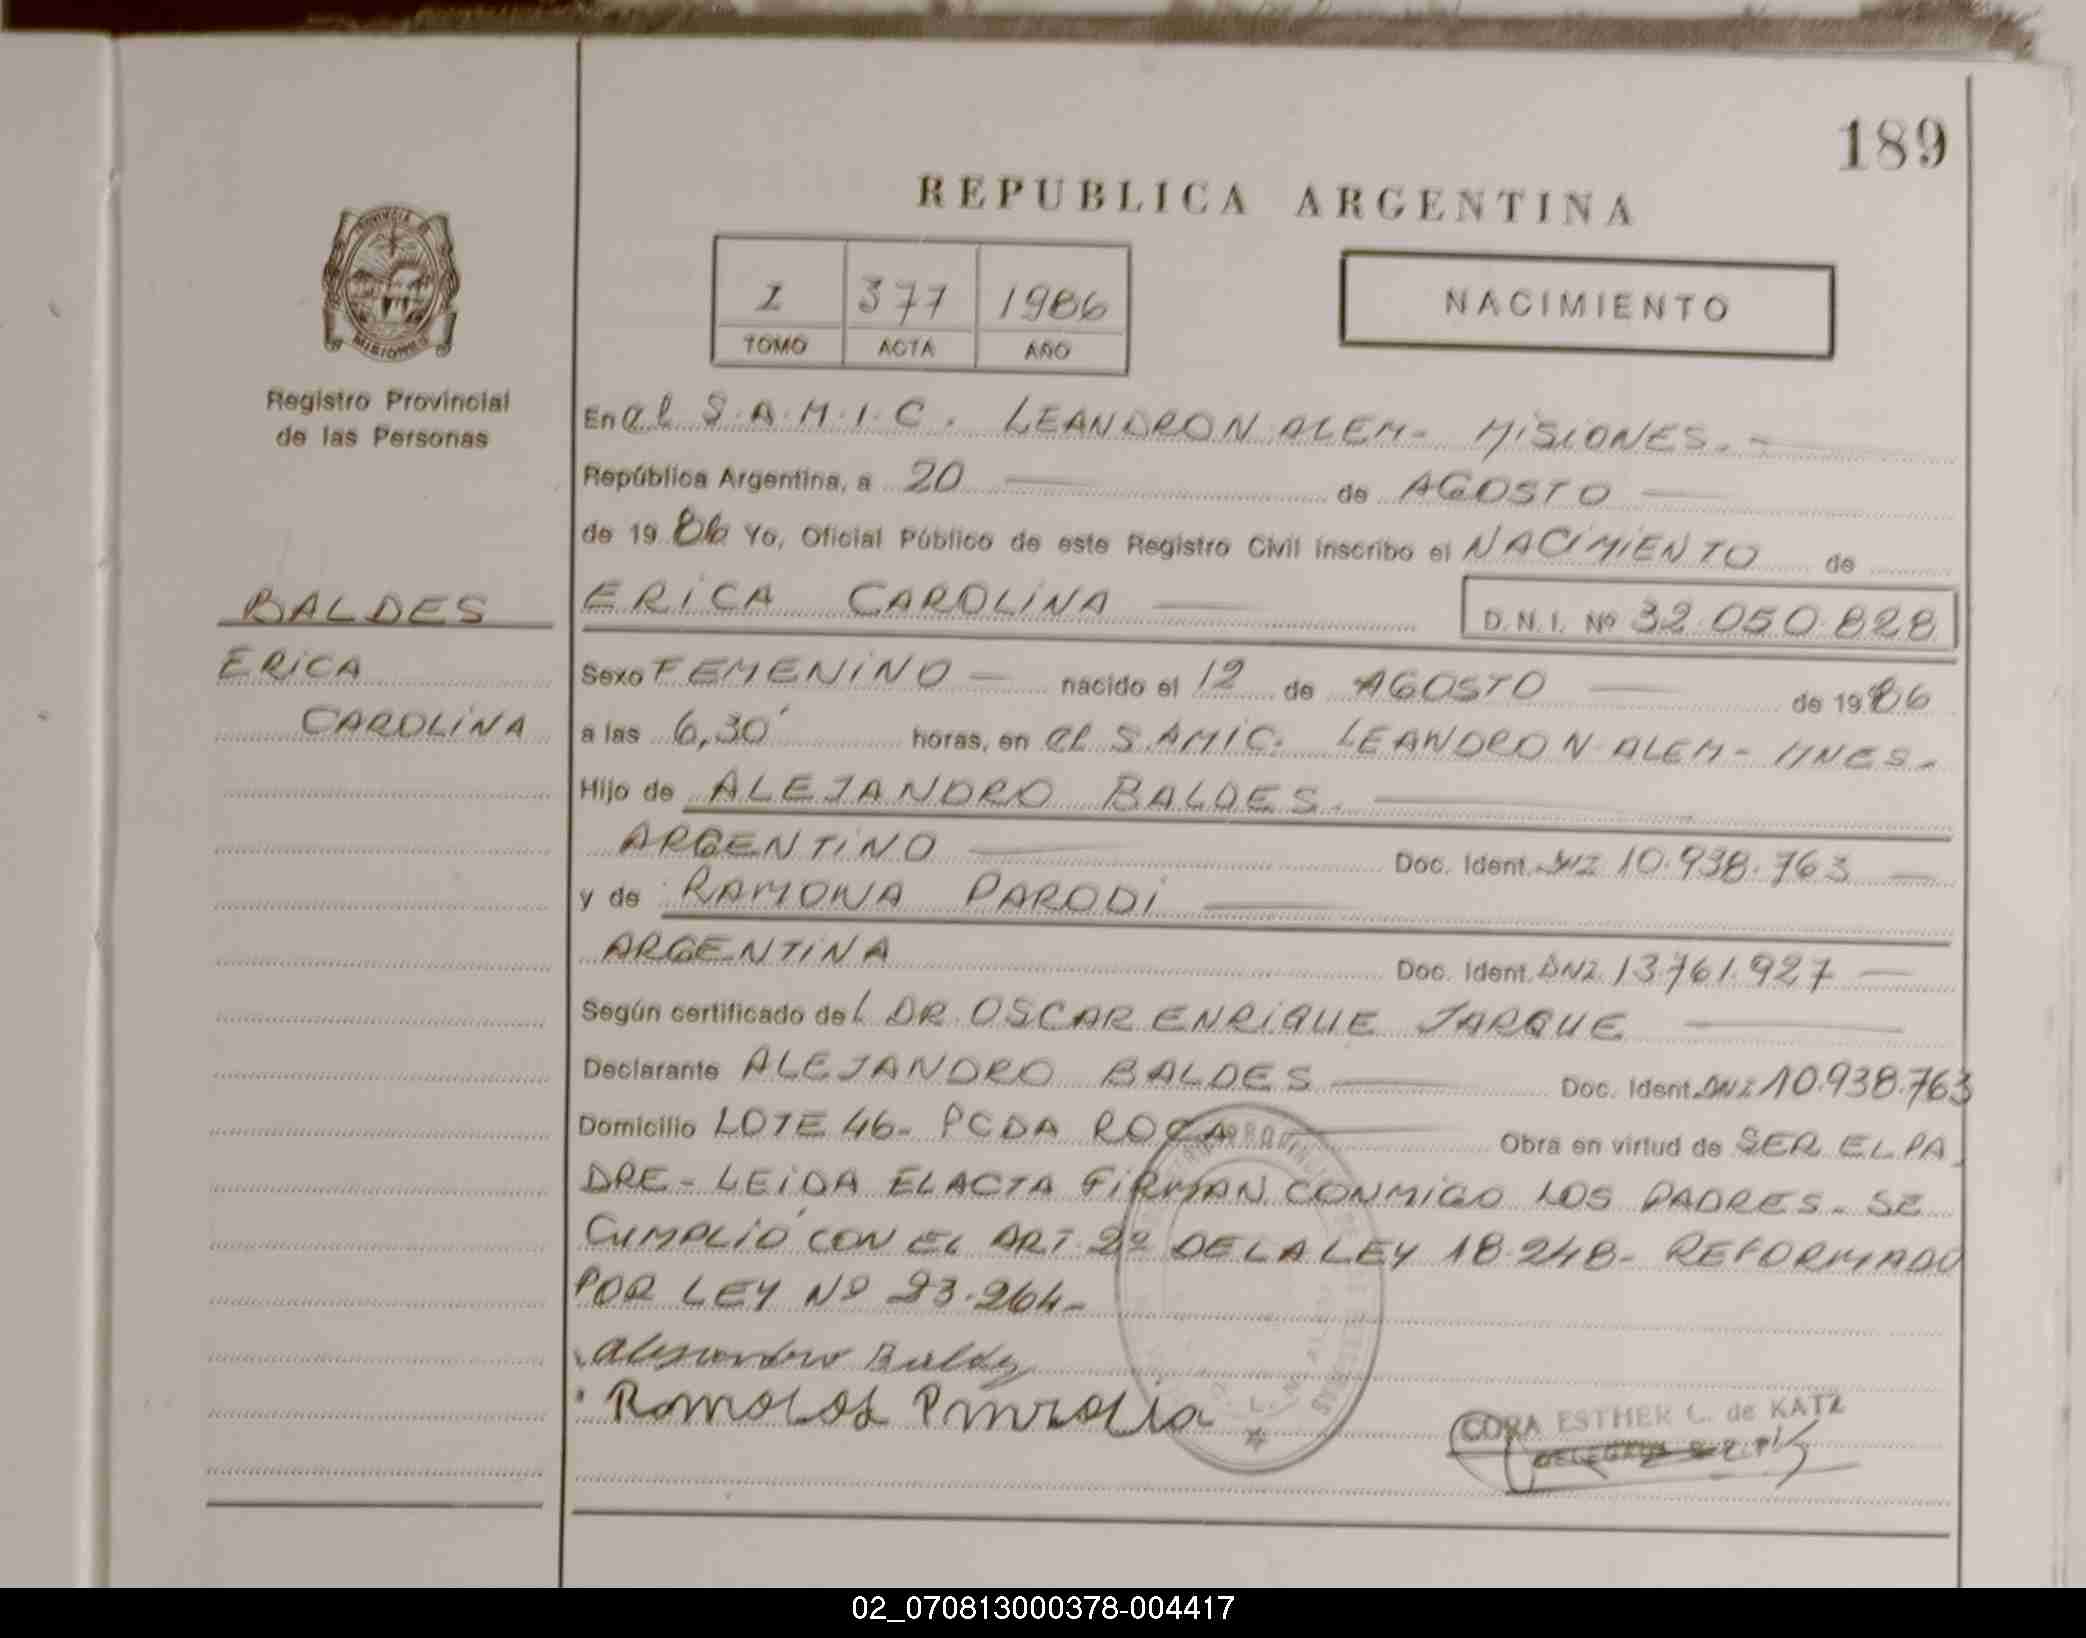 189
REPUBLICA ARGENTINA
PROVINCIA
MISIONES
Registro Provincial
de las Personas
1 377 1986
TOMO ACTA AÑO
NACIMIENTO
En el S.A.M.I.C. LEANDRO N ALEM- MISIONES.-
República Argentina, a 20 de AGOSTO
de 1986 Yo, Oficial Público de este Registro Civil inscribo el NACIMIENTO de
ERICA CAROLINA D.N.I. Nº 32.050.828
BALDES
ERICA
CAROLINA
Sexo FEMENINO - nacido el 12 de AGOSTO de 1986
a las 6,30' horas, en el S.AMIC. LEANDRO N ALEM- MNES.-
Hijo de ALEJANDRO BALDES.
ARGENTINO Doc. Ident. DNI 10.938.763
y de RAMONA PARODI
ARGENTINA Doc. Ident. DNI 13.761.927
Según certificado del DR. OSCAR ENRIQUE JARQUE
Declarante ALEJANDRO BALDES Doc. Ident. DNI 10.938.763
Domicilio LOTE 46- PCDA ROCA Obra en virtud de SER EL PA
DRE- LEIDA EL ACTA FIRMAN CONMIGO LOS PADRES- SE
CUMPLIÓ CON EL ART 2º DE LA LEY 18.248- REFORMADO
POR LEY Nº 23.264-
CORA ESTHER C. de KATZ
02_070813000378-004417